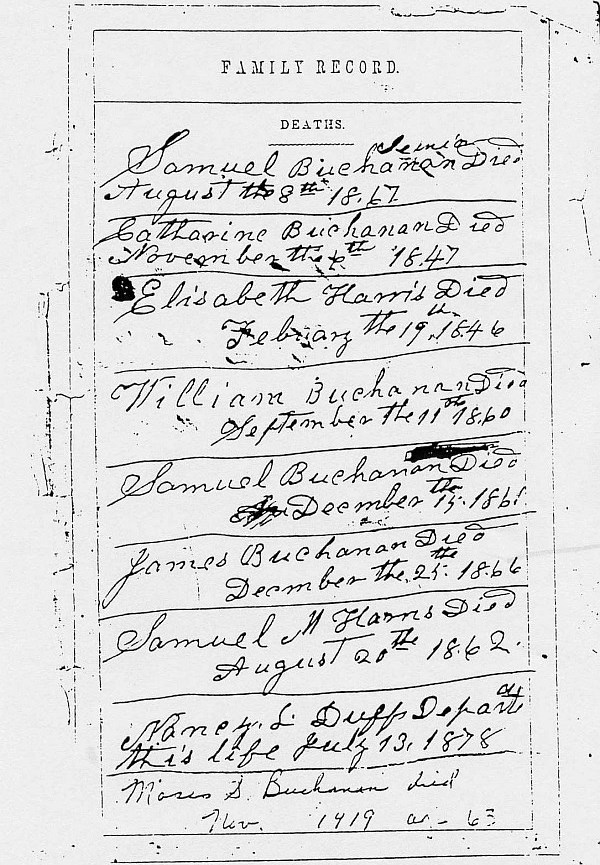 FAMILY RECORD.
DEATHS.
Senior
Samuel Buchanan Died
August the 8th 18.67
Catharine Buchanan Died
November the 6th 18.47
Elisabeth Harris Died
Febuary the 19th 18.46
William Buchanan Died
September the 11th 18.60
Samuel Buchanan Died
December the 15. 1861
James Buchanan Died
Decmber the 25. 18.66
Samuel M Harris Died
August 20th 18.62.
Nancy. L Duff Departed
this life July 13, 1878
Moses S. Buchanan died
Nov. 1919 63